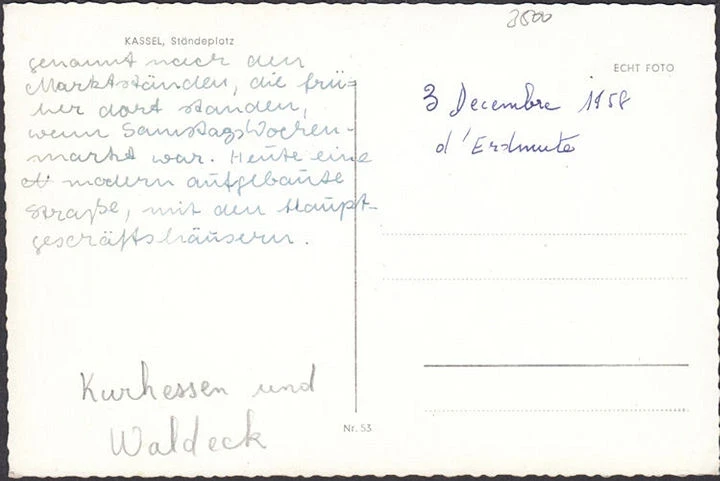 3500
KASSEL, Ständeplatz
genannt nach den
Marktständen, die frü=
her dort standen,
wenn Samstags Wochen-
markt war. Heute eine
modern aufgebaute
Straße, mit den Haupt-
geschäftshäusern.
ECHT FOTO
3 Decembre 1958
d'Erdmute
Kurhessen und
Waldeck
Nr. 53